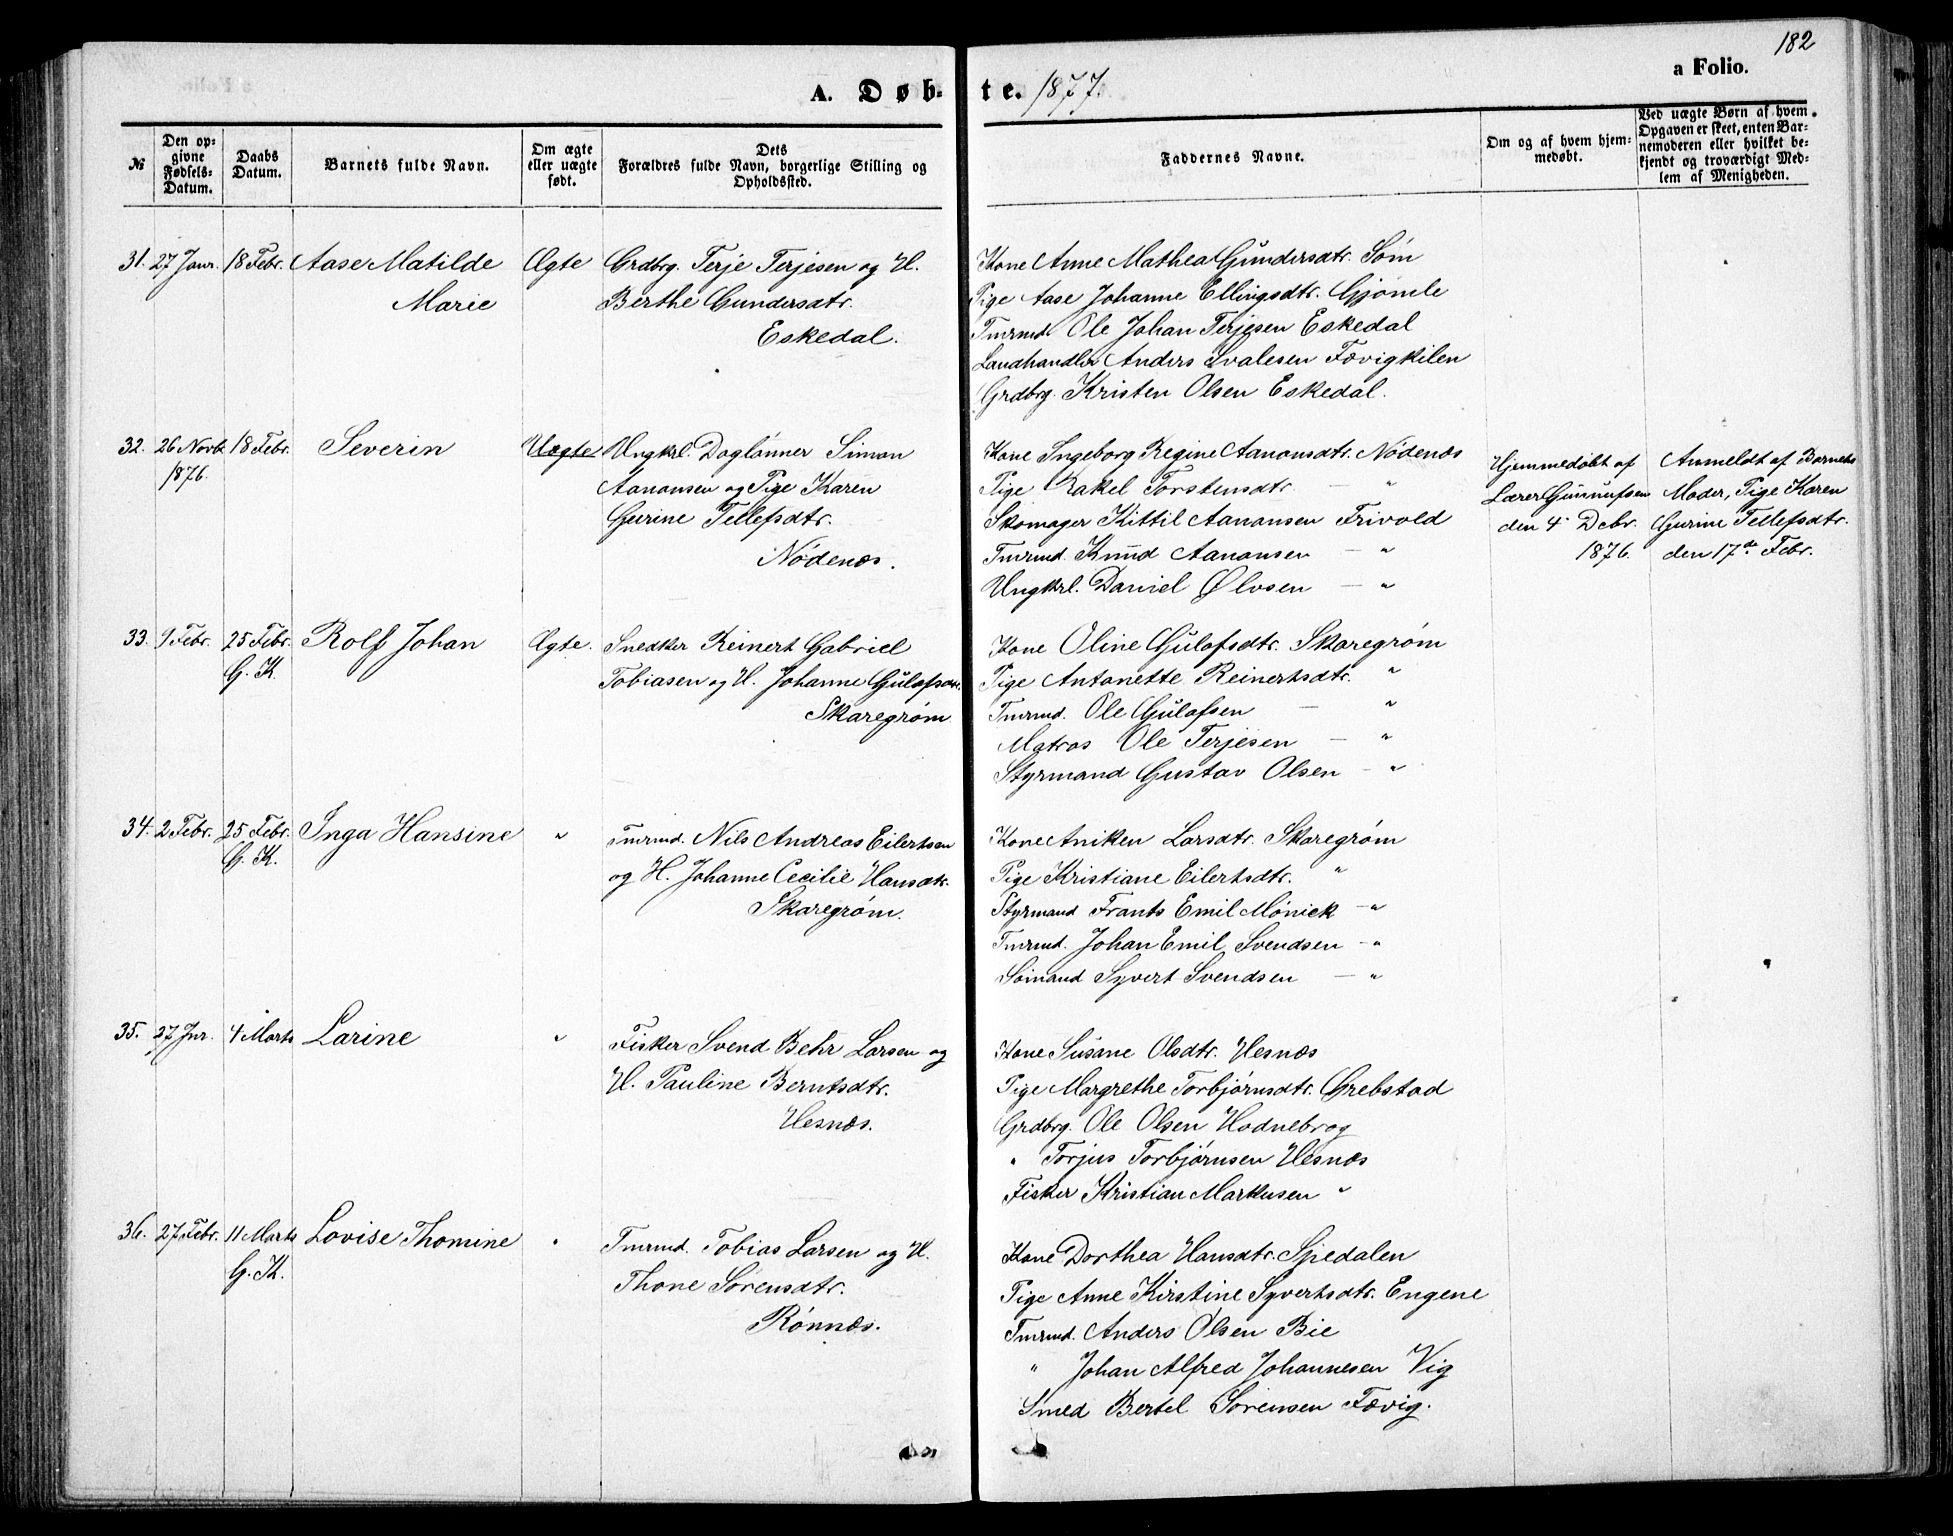 182
a Folio.
A. Døb-te. 1877.
№
Den op-
givne
Fødsels-
Datum.
Daabs
Datum.
Barnets fulde Navn.
Om ægte
eller uægte
født.
Dets
Forældres fulde Navn, borgerlige Stilling og
Opholdssted.
Faddernes Navne.
Om og af hvem hjem-
medøbt.
Ved uægte Børn af hvem
Opgaven er skeet, enten Bar-
nemoderen eller hvilket be-
kjendt og troværdigt Med-
lem af Menigheden.
31. 27 Janr. 18 Febr. Aase Matilde Ægte Grdbrg. Terje Terjesen og H.
Marie Berthe Gundersdtr.
Eskedal.
Kone Anne Mathea Gundersdtr. Søm
Pige Aase Johanne Ellingsdtr. Gjømle
Tmrmd. Ole Johan Terjesen Eskedal
Landhandler Anders Svalesen Fævigkilen
Grdbrg. Kristen Olsen Eskedal.
32. 26 Novb. 18 Febr. Severin Uægte Ungkrl. Daglønner Simon
1876. Aanonsen og Pige Karen
Gurine Tellefsdtr.
Nødenæs.
Kone Ingeborg Regine Aanonsdtr. Nødenæs
Pige Rakel Torstensdtr. — "
Skomager Kittil Aanonsen Frivold
Tmrmd. Knud Aanonsen — "
Ungkrl. Daniel Ølvsen — "
Hjemmedøbt af
Lærer Gunnufsen
den 4. Debr.
1876.
Anmeldt af Barnets
Moder, Pige Karen
Gurine Tellefsdtr.
den 17de Febr.
33. 9 Febr. 25 Febr. Rolf Johan Ægte. Snedker Reinert Gabriel
G. K. Tobiasen og H. Johanne Gulofsdtr.
Skaregrøm
Kone Oline Gulofsdtr. Skaregrøm
Pige Antonette Reinertsdtr. "
Tmrmd. Ole Gulofsen — "
Matros Ole Terjesen — "
Styrmand Gustav Olsen — "
34. 2 Febr. 25 Febr. Inga Hansine " Tmrmd. Nils Andreas Eilertsen
G. K. og H. Johanne Cecilie Hansdtr.
Skaregrøm.
Kone Aniken Larsdtr. Skaregrøm
Pige Kristiane Eilertsdtr. "
Styrmand Frants Emil Mönick — "
Tmrmd. Johan Emil Svendsen — "
Sömand Syvert Svendsen — "
35. 27 Jnr. 4 Marts Larine " Fisker Svend Behr Larsen og
H. Pauline Berntsdtr.
Hesnæs.
Kone Susane Olsdtr. Hesnæs
Pige Margrethe Torbjørnsdtr. Grebstad
Grdbrg. Ole Olsen Hodnebrog
" Torjus Torbjørnsen Hesnæs
Fisker Kristian Markusen "
36. 27 Febr. 11 Marts Lovise Thomine " Tmrmd. Tobias Larsen og H.
G. K. Thone Sørensdtr.
Rønnæs.
Kone Dorthea Hansdtr. Spedalen
Pige Anne Kirstine Syvertsdtr. Engene
Tmrmd. Anders Olsen Bie
" Johan Alfred Johannesen Vig
Smed Bertel Sørensen Fævig.